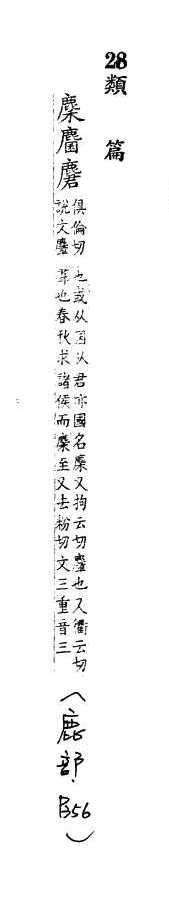 28類篇
麇麕麏
俱倫切
說文麞
也或从囷从君亦國名麇又拘云切麞也又衢云切
羣也春秋求諸侯而麇至又去粉切文三重音三
(鹿部